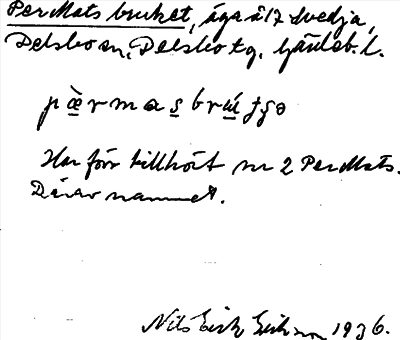 Per Mats bruket, äga å 17 Svedja,
Delsbo sn, Delsbo tg, Gävleb. l.
pærmasbru̇tjsə
Har förr tillhört nr 2 Per Mats.
Därav namnet.
Nils Erik Eriksson 1936.